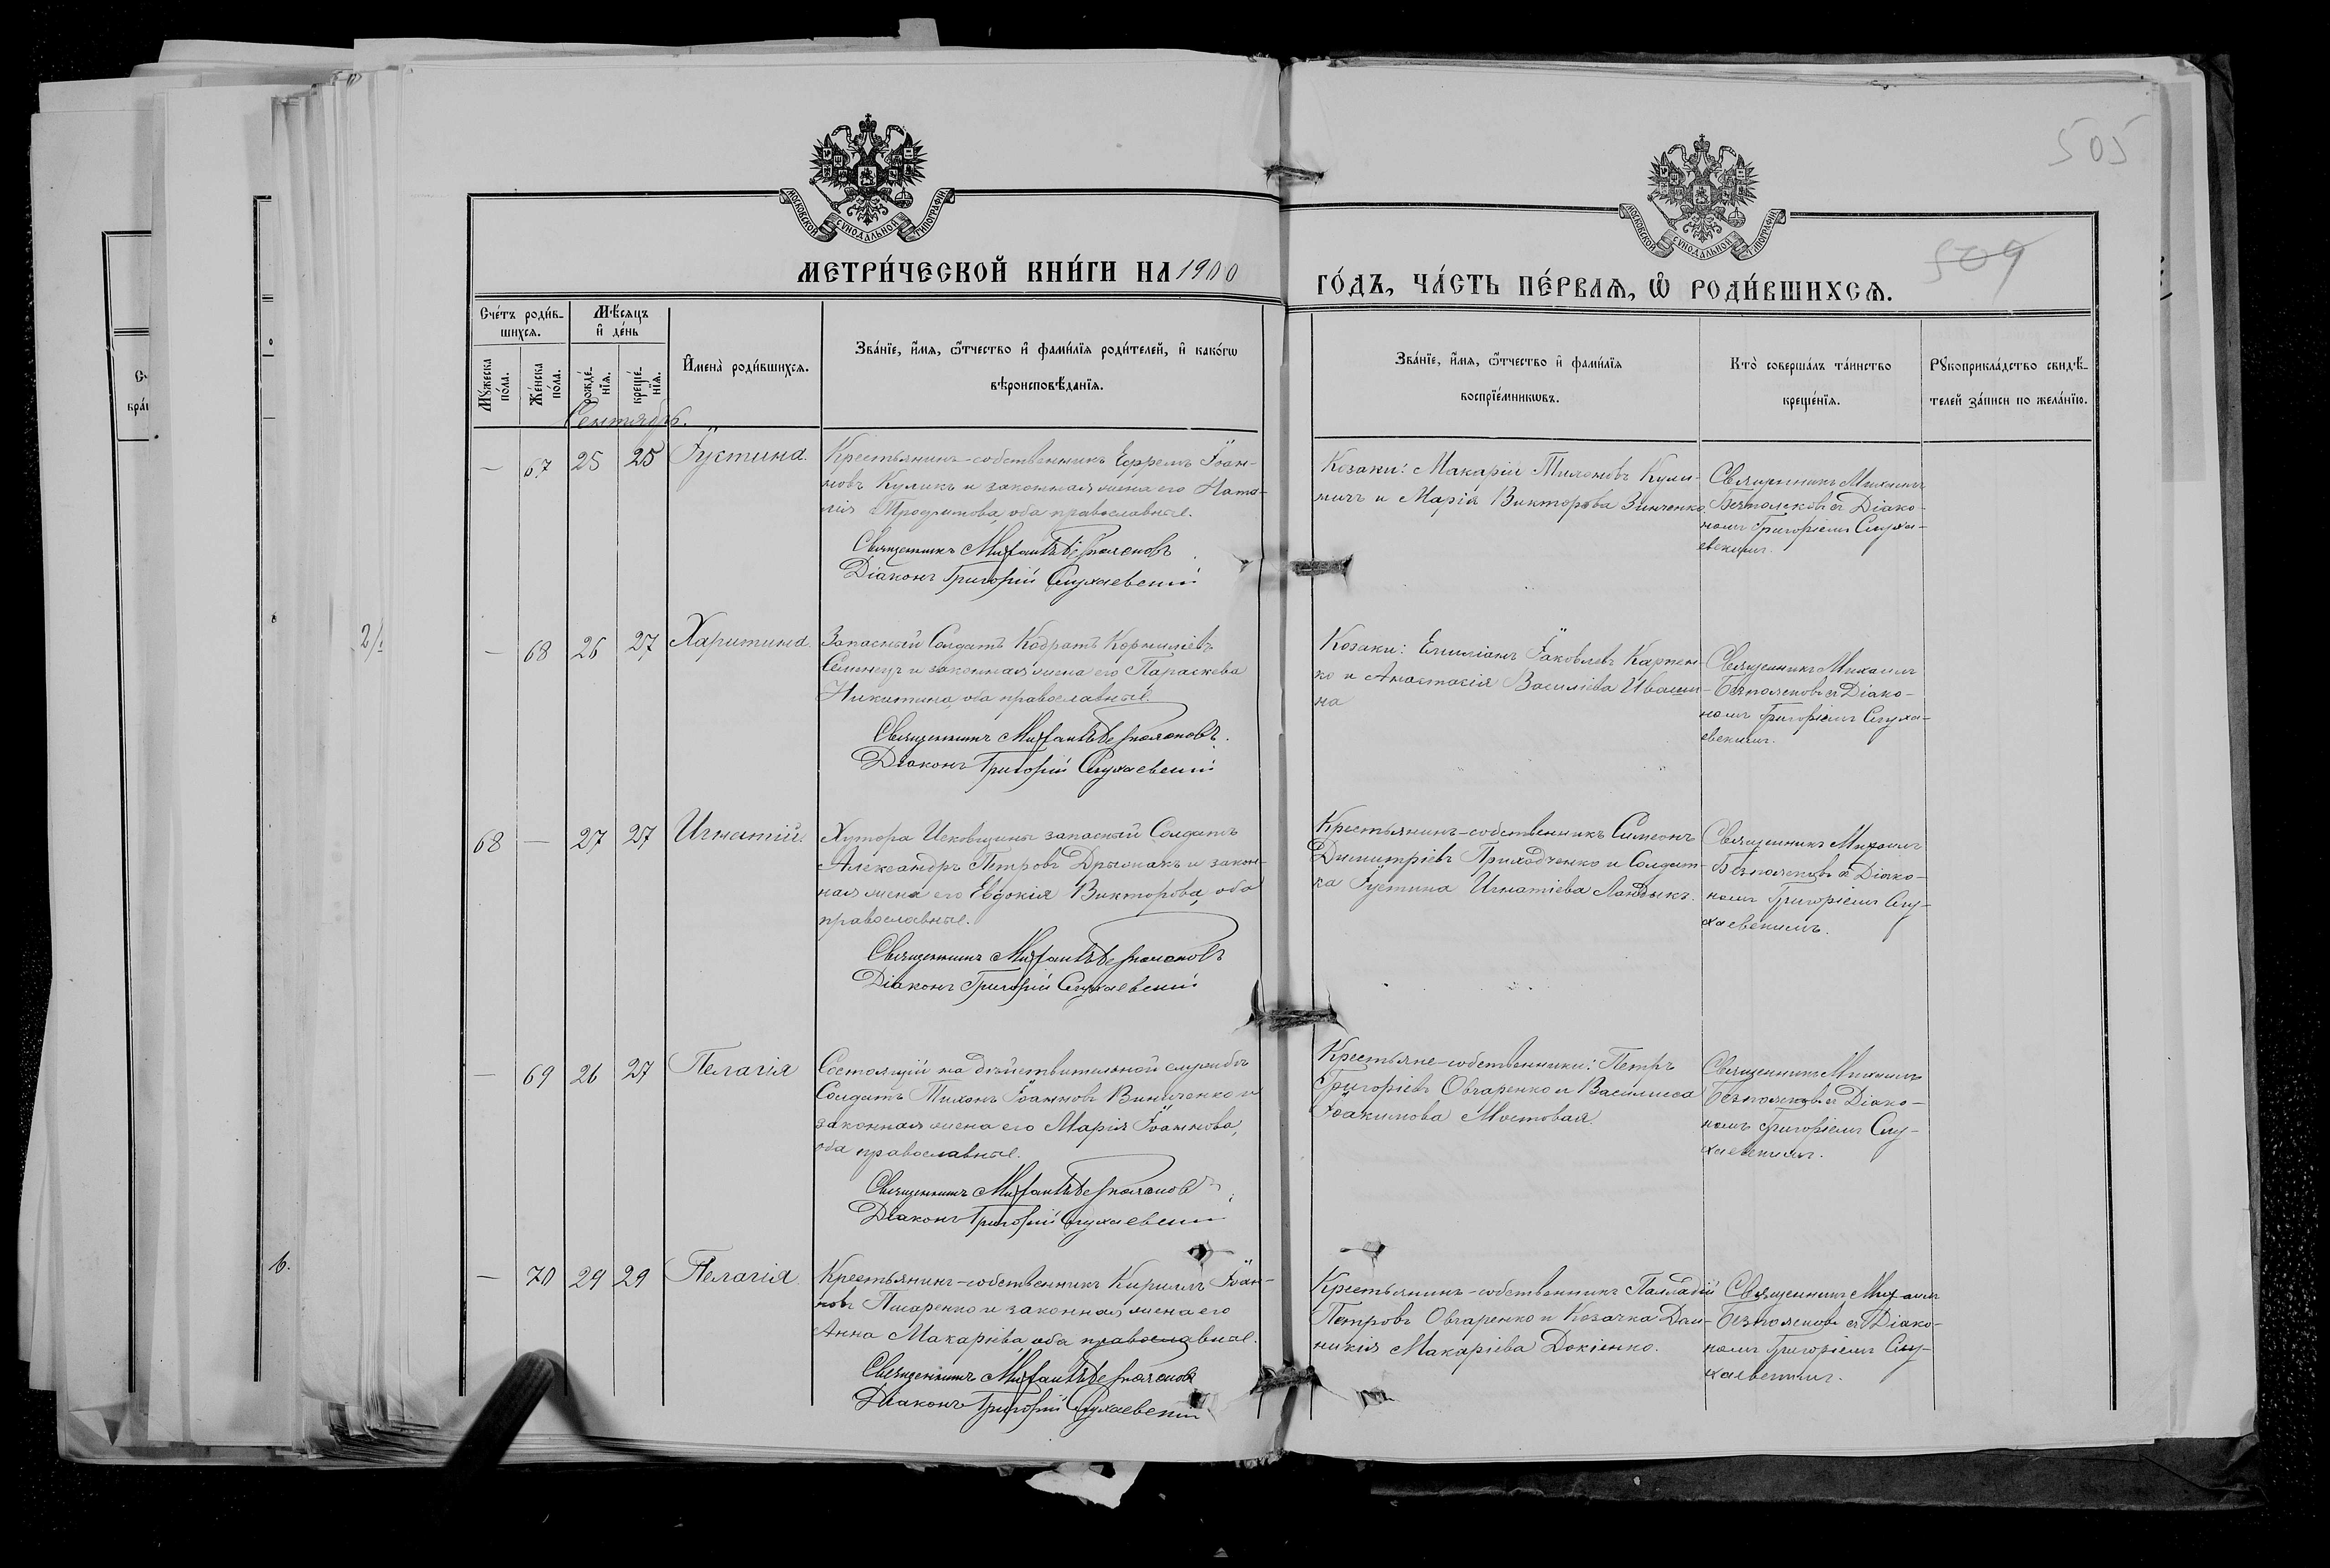 505
509
МОСКОВСКОЙ СѴНОДАЛЬНОЙ ТИПОГРАФІИ
МОСКОВСКОЙ СѴНОДАЛЬНОЙ ТИПОГРАФІИ
МЕТРИ́ЧЕСКОЙ КНИ́ГИ НА 1900 ГО́ДЪ, ЧА́СТЬ ПЕ́РВАѦ, Ѡ҆ РОДИ́ВШИХСѦ.
Сче́тъ роди́в-
шихсѧ.
Мꙋ́жеска
по́ла.
Же́нска
по́ла.
Мѣ́сѧцъ
и҆ де́нь
рожде́-
нїѧ.
креще́-
нїѧ.
И҆мена̀ роди́вшихсѧ.
Зва́нїе, и҆́мѧ, ѻ҆́тчество и҆ фами́лїѧ роди́телей, и҆ како́гѡ
вѣроисповѣ́данїѧ.
Зва́нїе, и҆́мѧ, ѻ҆́тчество и҆ фами́лїѧ
воспрїе́мникѡвъ.
Кто̀ соверша́лъ та́инство
креще́нїѧ.
Рꙋкоприкла́дство свидѣ́-
телей за́писи по жела́нїю.
Сентябрь.
— 67 25 25 Іустина.
Крестьянинъ-собственникъ Ефремъ Іоан-
новъ Куликъ и законная жена его Ната-
лія Трофимова, оба православные.
Священникъ Михаилъ Безпалковъ
Діаконъ Григорій Слухаевскій
Козаки: Макарій Тихоновъ
и Марія Викторова Зинченко
Священникъ Михаилъ
Безпалковъ съ Діако-
номъ Григоріемъ Слуха-
евскимъ.
— 68 26 27 Харитина.
Запасный Солдатъ Кодратъ Корниліевъ
и законная жена его Параскева
Никитина, оба православные.
Священникъ Михаилъ Безпалковъ.
Діаконъ Григорій Слухаевскій
Козаки: Емиліанъ Іаковлевъ Карпен-
ко и Анастасія Василіева Иваши-
на
Священникъ Михаилъ
Безпалковъ съ Діако-
номъ Григоріемъ Слуха-
евскимъ.
68 — 27 27 Игнатій.
Хутора Исковщины запасный Солдатъ
Александръ Петровъ и закон-
ная жена его Евдокія Викторова, оба
православные.
Священникъ Михаилъ Безпалковъ
Діаконъ Григорій Слухаевскій
Крестьянинъ-собственникъ Симеонъ
Димитріевъ Приходченко и Солдат-
ка Іустина Игнатіева
Священникъ Михаилъ
Безпалковъ съ Діако-
номъ Григоріемъ Слу-
хаевскимъ.
— 69 26 27 Пелагія
Состоящій на дѣйствительной службѣ
Солдатъ Тихонъ Іоанновъ Винниченко и
законная жена его Марія Іоаннова,
оба православные.
Священникъ Михаилъ Безпалковъ
Діаконъ Григорій Слухаевскій
Крестьяне-собственники: Петръ
Григоріевъ Овчаренко и Василисса
Іоакимова Мостовая.
Священникъ Михаилъ
Безпалковъ съ Діако-
номъ Григоріемъ Слу-
хаевскимъ.
— 70 29 29 Пелагія.
Крестьянинъ-собственникъ Кириллъ Іоан-
новъ Писаренко и законная жена его
Анна Макаріева, оба православные.
Священникъ Михаилъ Безпалковъ
Діаконъ Григорій Слухаевскій
Крестьянинъ-собственникъ Палладій
Петровъ Овчаренко и Козачка Дом-
никія Макаріева Докіенко.
Священникъ Михаилъ
Безпалковъ съ Діако-
номъ Григоріемъ Слу-
хаевскимъ.